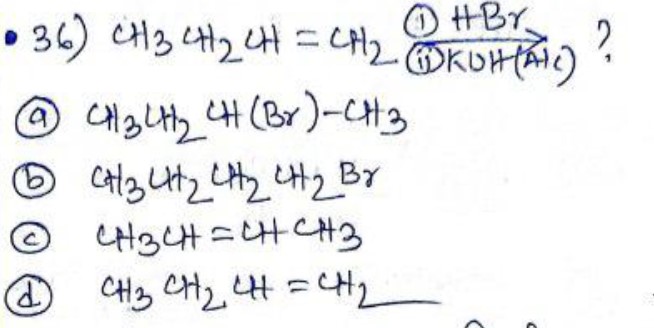 • 36) CH3 CH2 CH = CH2 (i) HBr (ii) KOH (Alc) ?
(a) CH3CH2 CH (Br)-CH3
(b) CH3 CH2 CH2 CH2 Br
(c) CH3CH = CH CH3
(d) CH3 CH2 CH = CH2